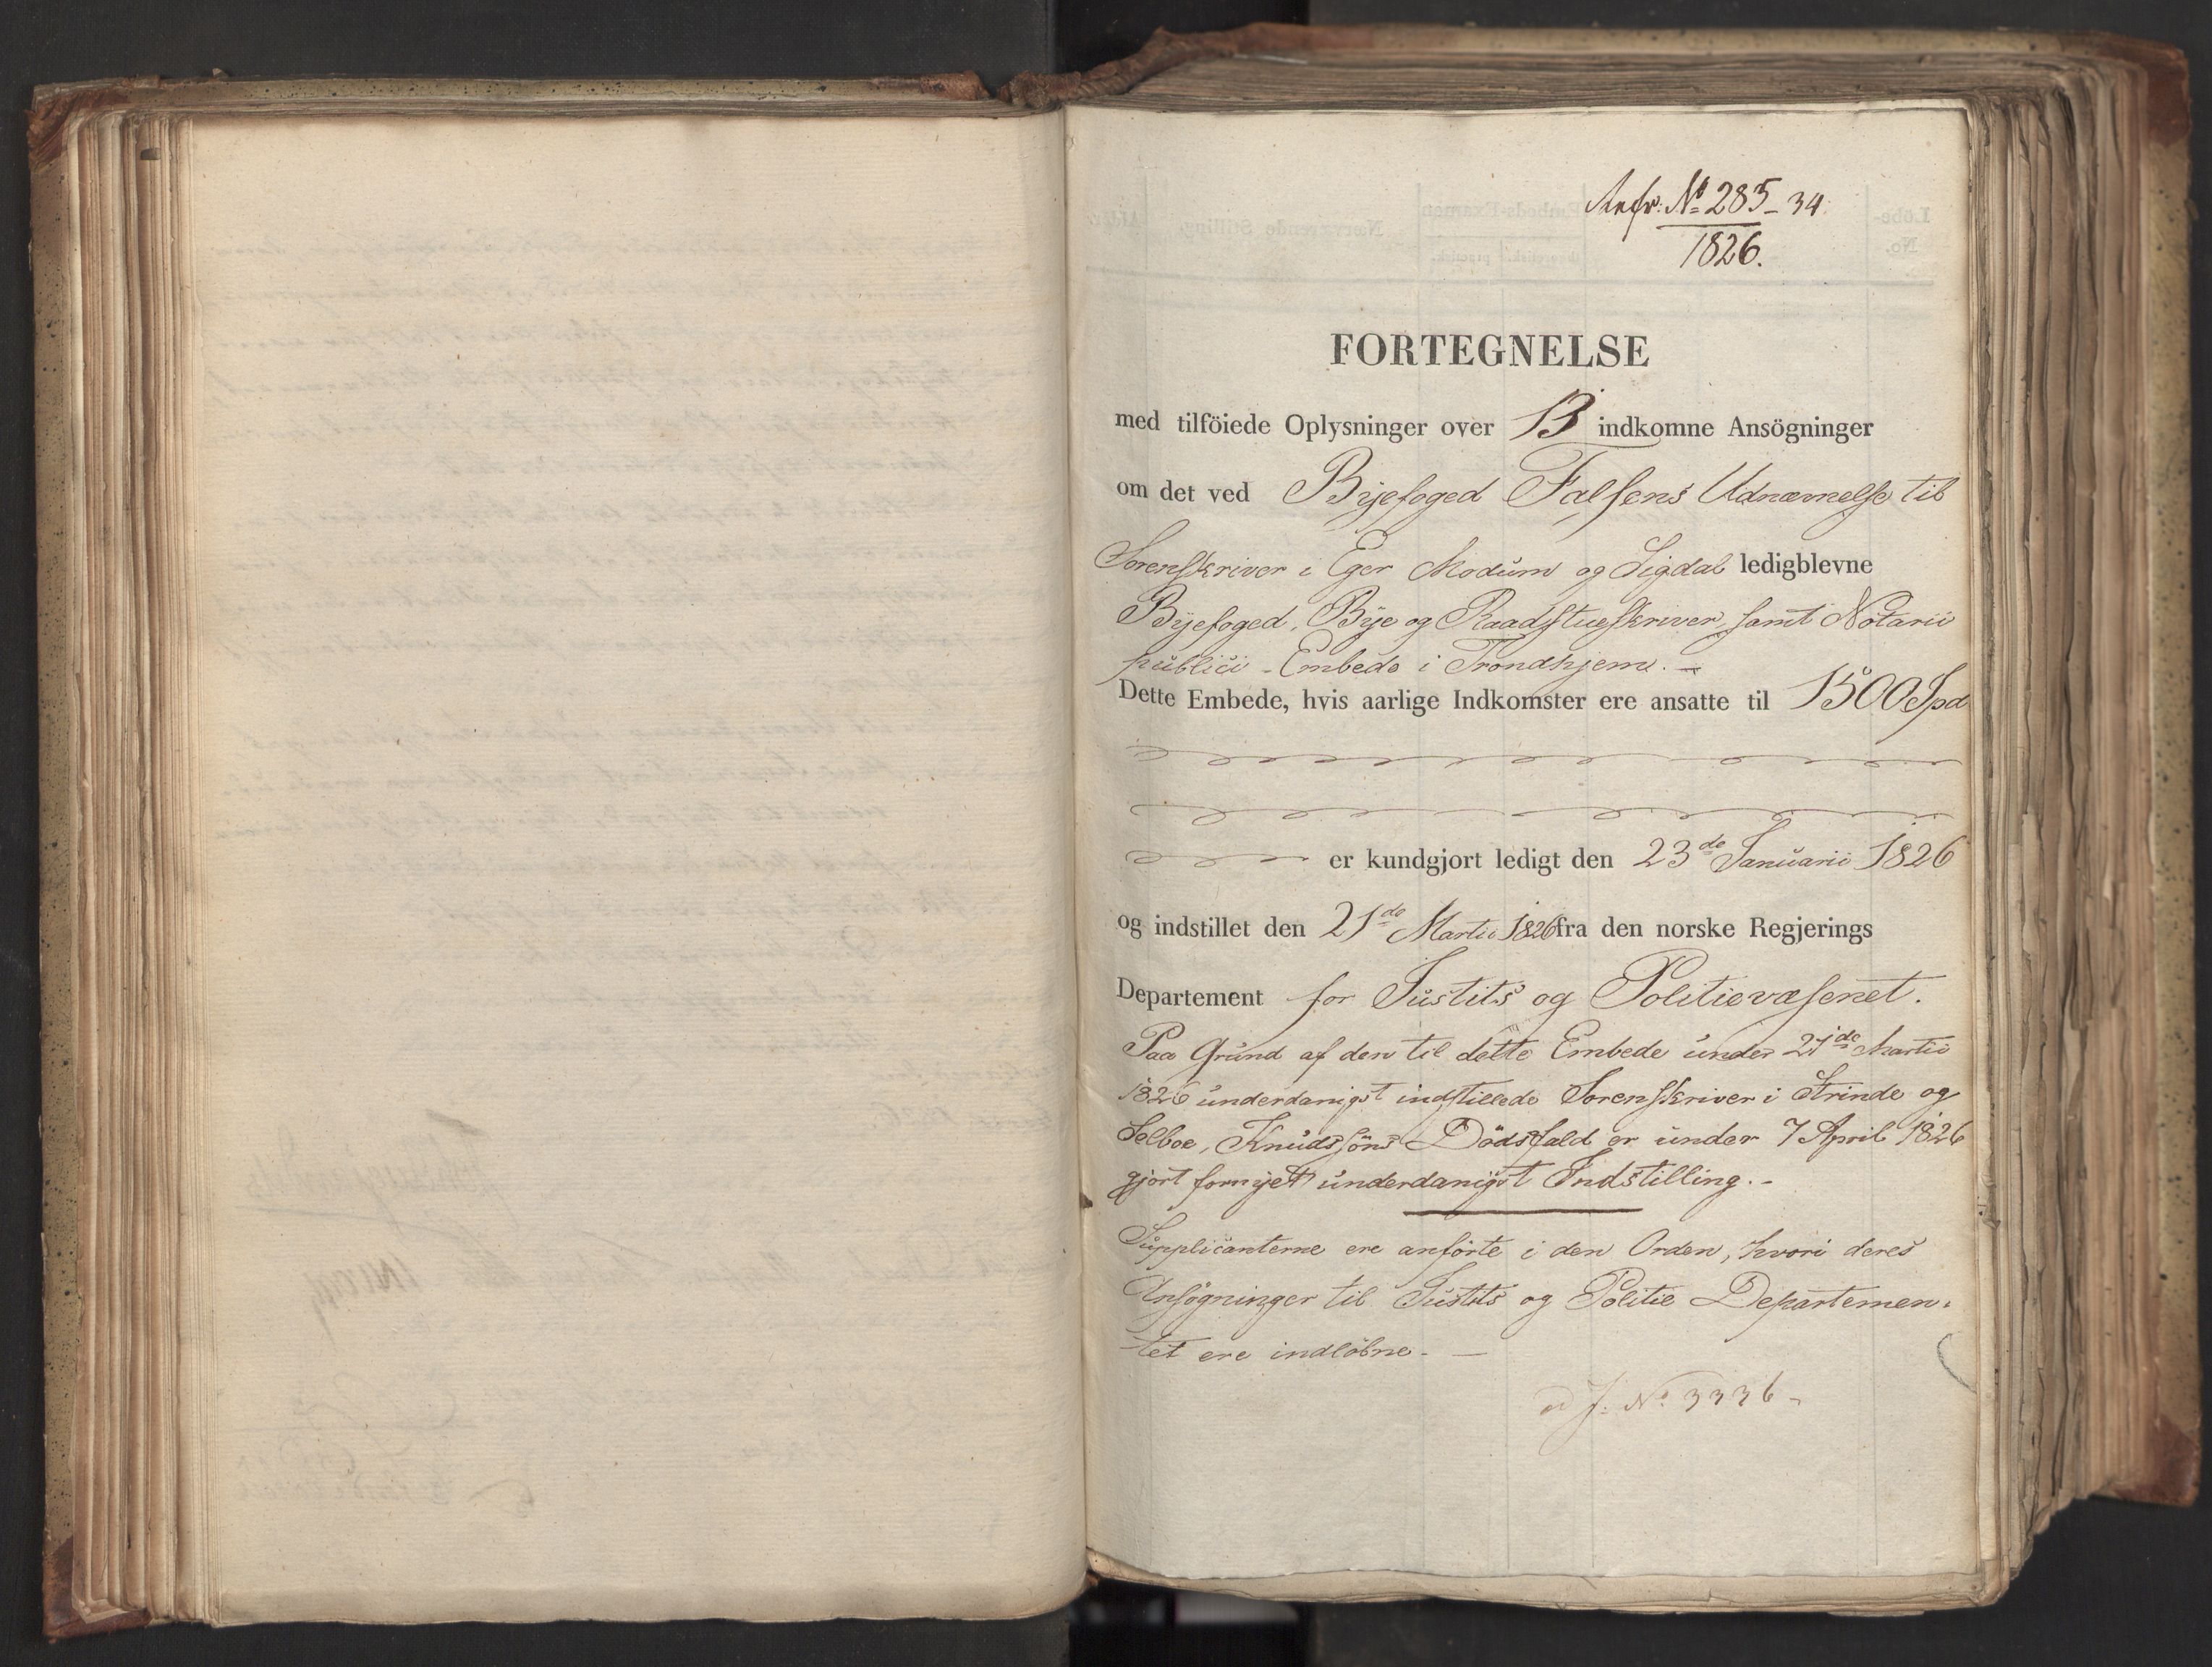 Refr: No 285-34
1826.
FORTEGNELSE
med tilföiede Oplysninger over 13 indkomne Ansögninger
om det ved Byefoged Falsens Udnævnelse til
Sorenskriver i Eger Modum og Sigdal ledigblevne
Byefoged, Bye og Raadstueskriver, samt Notarii
publici-Embede i Trondhjem. -
Dette Embede, hvis aarlige Indkomster ere ansatte til 1500 Spd
er kundgjort ledigt den 23de Januarii 1826
og indstillet den 21de Martii 1826 fra den norske Regjerings
Departement for Justits og Politievæsenet.
Paa Grund af den til dette Embede under 21de Martii
1826 underdanigst indstillede Sorenskriver i Strinde og
Selboe, Knudssöns Dödsfald er under 7 April 1826
gjort fornyet underdanigst Indstilling. -
Supplicanterne ere anförte i den Orden, hvori deres
Ansögninger til Justits og Politie Departemen-
tet ere indlöbne. -
J: No 3336-